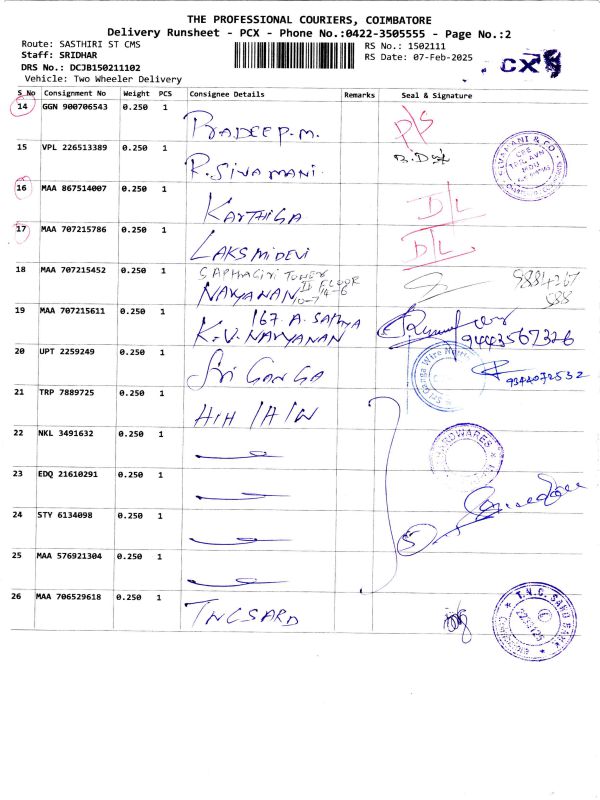 THE PROFESSIONAL COURIERS, COIMBATORE
Delivery Runsheet - PCX - Phone No.:0422-3505555 - Page No.:2
Route: SASTHIRI ST CMS
RS No.: 1502111
Staff: SRIDHAR
RS Date: 07-Feb-2025
DRS No.: DCJB150211102
CX
Vehicle: Two Wheeler Delivery
S No Consignment No Weight PCS Consignee Details Remarks Seal & Signature
14 GGN 900706543 0.250 1 PRADEEP.M. P/S
15 VPL 226513389 0.250 1 R.SIVAMANI.
SIVAMANI & CO
16 MAA 867514007 0.250 1 KARTHIGA D/L
17 MAA 707215786 0.250 1 LAKSMIDEVI D/L
18 MAA 707215452 0.250 1 SAPHAGIRI TOWER
II FLOOR
NARYANAN
19 MAA 707215611 0.250 1 167. A. SATHYA
K.V. NARYANAN 9443567326
20 UPT 2259249 0.250 1 Sri GANGA 9344072532
Sri Ganga Wire
21 TRP 7889725 0.250 1 HIH / HIW
22 NKL 3491632 0.250 1
HARDWARES
23 EDQ 21610291 0.250 1
24 STY 6134098 0.250 1
5
25 MAA 576921304 0.250 1
26 MAA 706529618 0.250 1 TNCSARD
T.N.C. SARD BANK